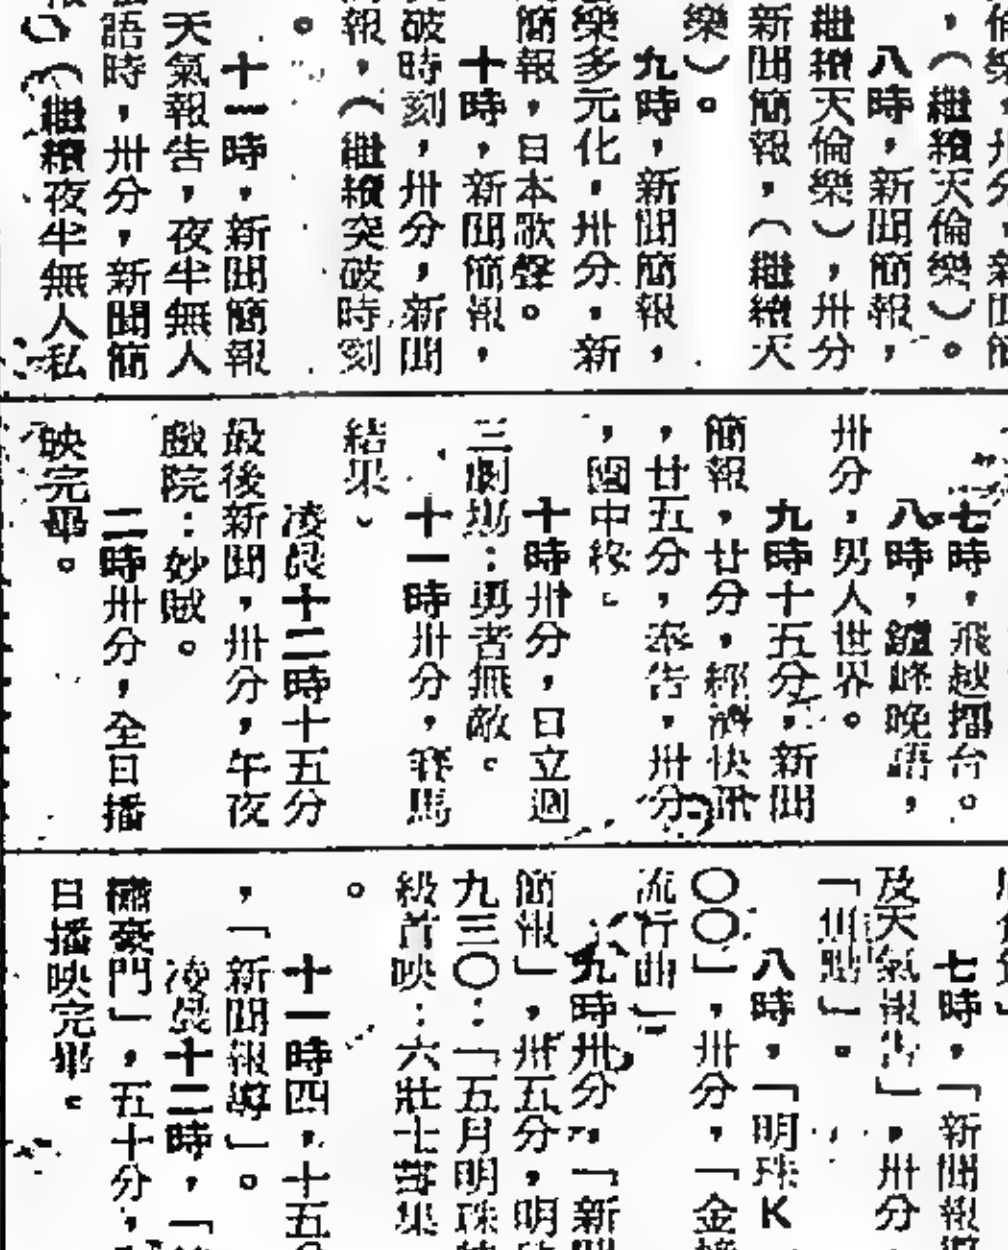 ，（繼續天倫樂）。
八時，新聞簡報，
繼續天倫樂），卅分
新聞簡報，（繼續天
樂）。
九時，新聞簡報，
樂多元化，卅分，新
簡報，日本歌聲。
十時，新聞簡報，
破時刻，卅分，新聞
報，（繼續突破時刻
。
十一時，新聞簡報
天氣報告，夜半無人
語時，卅分，新聞簡
（繼續夜半無人私
七時，飛越擂台。
八時，鑪峰晚語，
卅分，男人世界。
九時十五分，新聞
簡報，廿分，經濟快訊
，廿五分，泰告，卅分
，國中
十時卅分，日立週
三劇場：勇者無敵。
十一時卅分，賽馬
結果。
凌晨十二時十五分
最後新聞，卅分，午夜
戲院：妙賊。
二時卅分，全日播
映完畢。
七時，「新聞報導
及天氣報告」，卅分
八時，「明珠K
〇〇」，卅分，「金
流行曲」
九時卅分，「新聞
簡報」，卅五分，明
九三〇：「五月明珠
級首映：六壯士
。
十一時四十五分
，「新聞報導」。
凌晨十二時，「
豪門」，五十分，
日播映完畢。